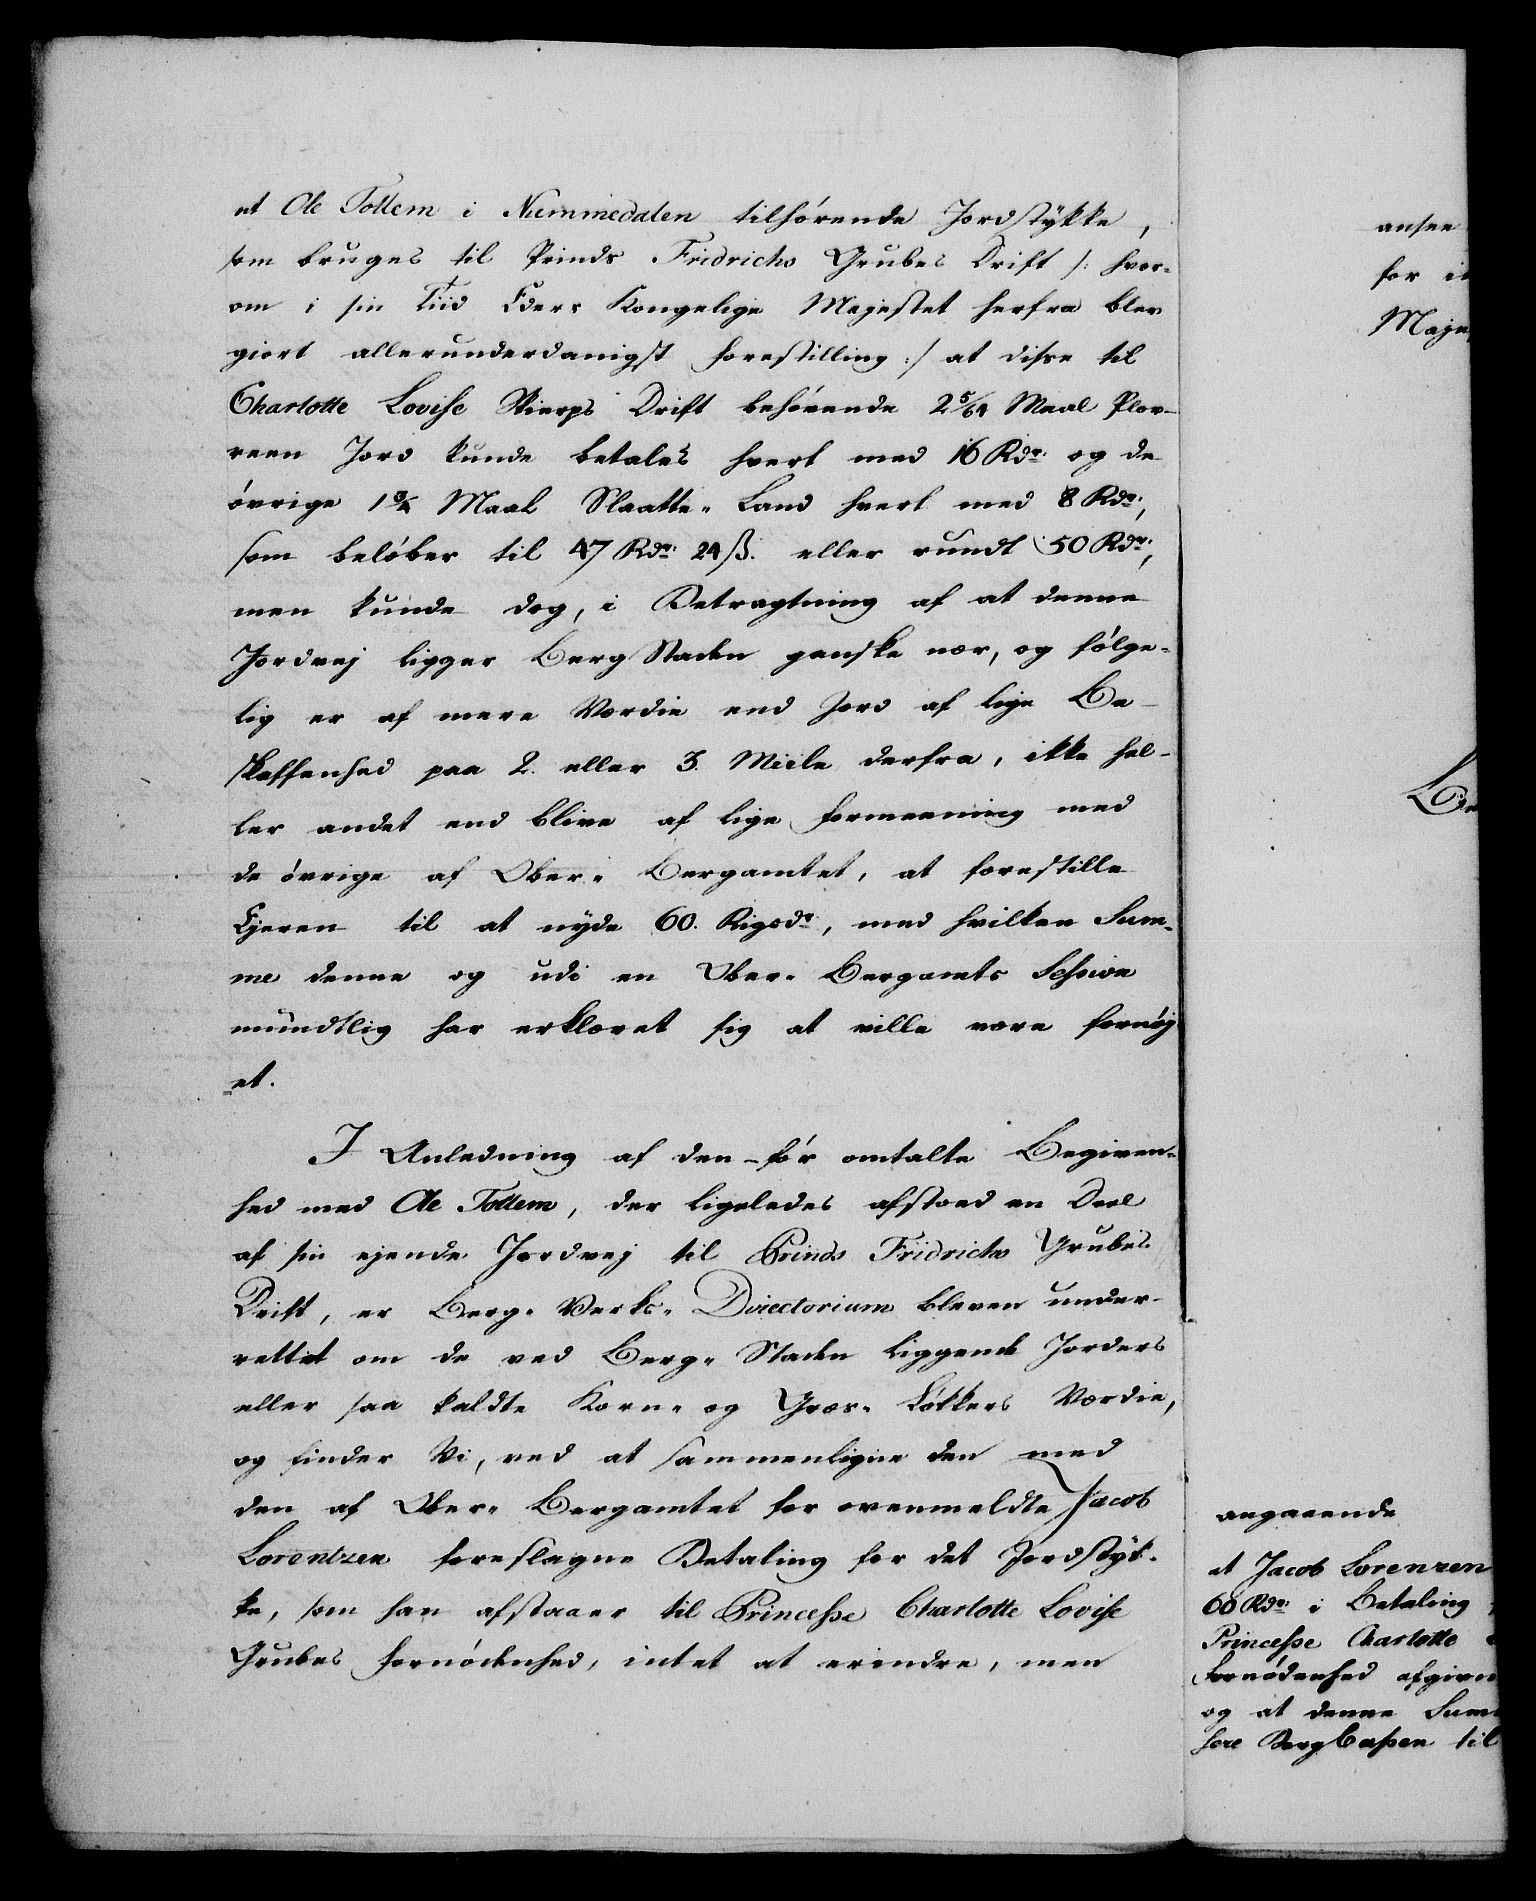 et Ole Tottem i Nummedalen tilhørende Jordstykke,
som bruges til Prinds Fridrichs Grubes Drift /: hvor-
om i sin Tiid Eders Kongelige Majestet herfra blev
giort allerunderdanigst forestilling :/ at disse til
Charlotte Lovise Skierps Drift behøvende 2 5/64 Maal Plov-
reen Jord kunde betales hvert med 16 Rdr. og de
øvrige 1 3/4 Maal Slaatte- Land hvert med 8 Rdr.,
som beløber til 47 Rdr. 24 ß. eller rundt 50 Rdr.,
men kunde dog, i Betragtning af at denne
Jordvej ligger Berg Staden ganske nær, og følge-
lig er af mere Værdie end Jord af lige Be-
skaffenhed paa 2. eller 3. Miile derfra, ikke hel-
ler andet end blive af lige formeening med
de øvrige af Ober- Bergamtet, at forestille
Ejeren til at nyde 60. Rigsdr., med hvilken Sum-
me denne og udi en Ober- Bergamts Session
mundtlig har erklæret sig at ville være fornøj-
et.
I Anledning af den før omtalte Begiven-
hed med Ole Tottem, der ligeledes afstoed en Deel
af sin ejende Jordvej til Prinds Fridrichs Grubes
Drift, er Berg- Verks- Directorium bleven under-
rettet om de ved Berg- Staden liggende Jorders
eller saa kaldte Korn- og Græs- Løkkers Værdie,
og finder Vi, ved at sammenligne den med
den af Ober- Bergamtet for ovenmeldte Jacob
Lorentzen foreslagne Betaling for det Jordstyk-
ke, som han afstaaer til Princesse Charlotte Lovise
Grubes fornødenhed, intet at erindre, men
ansee
for
Maje
angaaende
at Jacob Lorenzen
60 Rdr. i Betaling
Princesse Charlotte
fornødenhed afgivn
og at denne Sum
høre Berg Cassen til